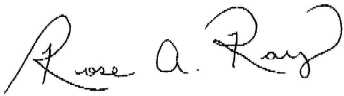 Rose A. Ray